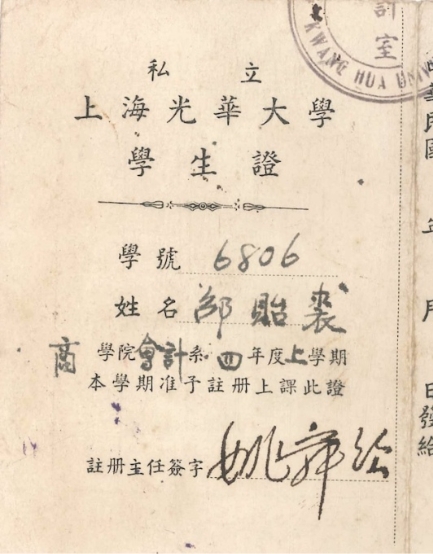 計室
KWANG HUA UNIV
私立
上海光華大學
學生證
學號 6806
姓名 邵貽裘
商學院會計系四年度上學期
本學期准予註册上課此證
註册主任簽字 姚
華民國 年 月 日發給